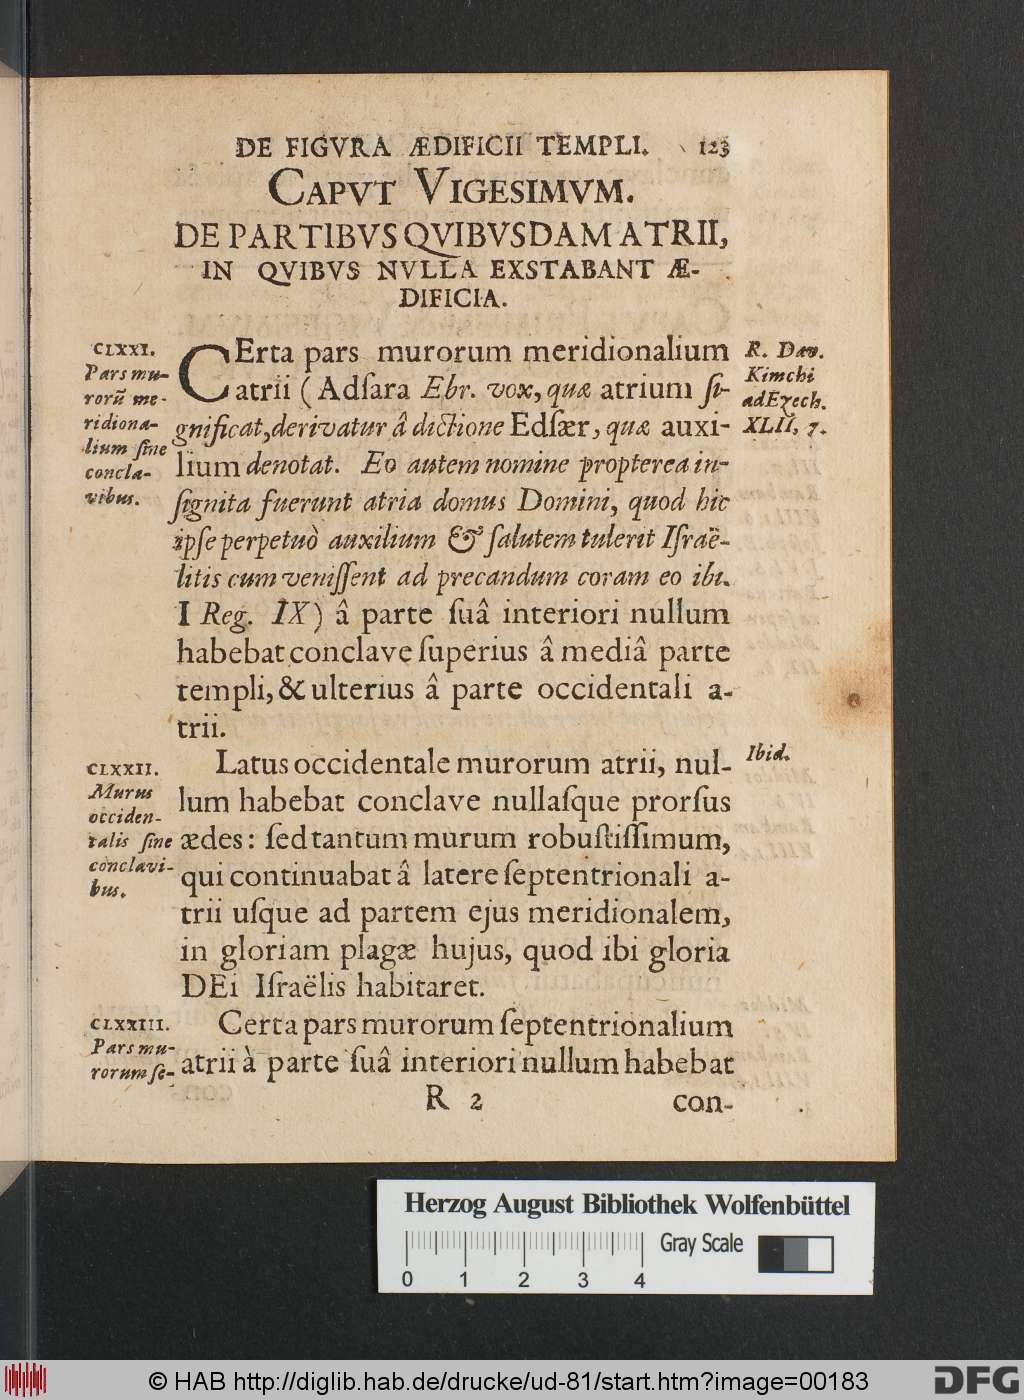 DE FIGVRA ÆDIFICII TEMPLI. 123
CAPVT VIGESIMVM.
DE PARTIBVS QVIBVSDAM ATRII,
IN QVIBVS NVLLA EXSTABANT Æ-
DIFICIA.
CLXXI.
Pars mu-
rorũ me-
ridiona-
lium ſine
concla-
vibus.
CErta pars murorum meridionalium
atrii (Adſara Ebr. vox, quæ atrium ſi-
gnificat, derivatur â dictione Edſær, quæ auxi-
lium denotat. Eo autem nomine propterea in-
ſignita fuerunt atria domus Domini, quod hic
ipſe perpetuò auxilium & ſalutem tulerit Iſraë-
litis cum veniſſent ad precandum coram eo ibi.
I Reg. IX) â parte ſuâ interiori nullum
habebat conclave ſuperius â mediâ parte
templi, & ulterius â parte occidentali a-
trii.
R. Dav.
Kimchi
ad Ezech.
XLII, 7.
CLXXII.
Murus
occiden-
talis ſine
conclavi-
bus.
Latus occidentale murorum atrii, nul-
lum habebat conclave nullaſque prorſus
ædes: ſed tantum murum robuſtiſſimum,
qui continuabat â latere ſeptentrionali a-
trii uſque ad partem ejus meridionalem,
in gloriam plagæ hujus, quod ibi gloria
DEi Iſraëlis habitaret.
Ibid.
CLXXIII.
Pars mu-
rorum ſe-
Certa pars murorum ſeptentrionalium
atrii à parte ſuâ interiori nullum habebat
R 2 con-
Herzog August Bibliothek Wolfenbüttel
Gray Scale
0 1 2 3 4
© HAB http://diglib.hab.de/drucke/ud-81/start.htm?image=00183
DFG